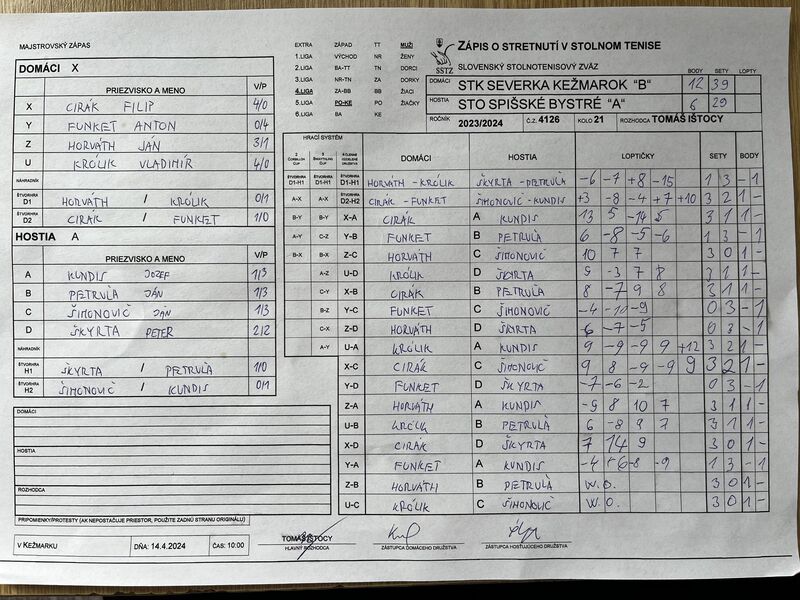 MAJSTROVSKÝ ZÁPAS
DOMÁCI X
PRIEZVISKO A MENO V/P
X CIRÁK FILIP 4/0
Y FUNKET ANTON 0/4
Z HORVÁTH JÁN 3/1
U KRÓLIK VLADIMÍR 4/0
NÁHRADNÍK
ŠTVORHRA D1 HORVÁTH / KRÓLIK 0/1
ŠTVORHRA D2 CIRÁK / FUNKET 1/0
HOSTIA A
PRIEZVISKO A MENO V/P
A KUNDIS JOZEF 1/3
B PETRUĽA JÁN 1/3
C ŠIMONOVIČ JÁN 1/3
D ŠKYRTA PETER 2/2
NÁHRADNÍK
ŠTVORHRA H1 ŠKYRTA / PETRUĽA 1/0
ŠTVORHRA H2 ŠIMONOVIČ / KUNDIS 0/1
DOMÁCI
HOSTIA
ROZHODCA
PRIPOMIENKY/PROTESTY (AK NEPOSTAČUJE PRIESTOR, POUŽITE ZADNÚ STRANU ORIGINÁLU)
V KEŽMARKU DŇA: 14.4.2024 ČAS: 10:00
EXTRA ZÁPAD TT MUŽI
1.LIGA VÝCHOD NR ŽENY
2.LIGA BA-TT TN DORCI
3.LIGA NR-TN ZA DORKY
4.LIGA ZA-BB BB ŽIACI
5.LIGA PO-KE PO ŽIAČKY
6.LIGA BA KE
SSTZ
ZÁPIS O STRETNUTÍ V STOLNOM TENISE
SLOVENSKÝ STOLNOTENISOVÝ ZVÄZ
BODY SETY LOPTY
DOMÁCI STK SEVERKA KEŽMAROK "B" 12 39
HOSTIA STO SPIŠSKÉ BYSTRÉ "A" 6 29
ROČNÍK 2023/2024 Č.Z. 4126 KOLO 21 ROZHODCA TOMÁŠ IŠTOCY
HRACÍ SYSTÉM
2 CORBILLON CUP 3 SWAYTHLING CUP 4 ČLENNÉ ODDIELOVÉ DRUŽSTVÁ
DOMÁCI HOSTIA LOPTIČKY SETY BODY
ŠTVORHRA D1-H1 ŠTVORHRA D1-H1 ŠTVORHRA D1-H1 HORVÁTH - KRÓLIK ŠKYRTA - PETRUĽA -6 -7 +8 -15 1 3 - 1
A-X A-X ŠTVORHRA D2-H2 CIRÁK - FUNKET ŠIMONOVIČ - KUNDIS +3 -8 -4 +7 +10 3 2 1 -
B-Y B-Y X-A CIRÁK A KUNDIS 13 5 -14 5 3 1 1 -
A-Y C-Z Y-B FUNKET B PETRUĽA 6 -8 -5 -6 1 3 - 1
B-X B-X Z-C HORVÁTH C ŠIMONOVIČ 10 7 7 3 0 1 -
A-Z U-D KRÓLIK D ŠKYRTA 9 -3 7 8 3 1 1 -
C-Y X-B CIRÁK B PETRUĽA 8 -7 9 8 3 1 1 -
B-Z Y-C FUNKET C ŠIMONOVIČ -4 -10 -9 0 3 - 1
C-X Z-D HORVÁTH D ŠKYRTA -6 -7 -5 0 3 - 1
A-Y U-A KRÓLIK A KUNDIS 9 -9 -9 9 +12 3 2 1 -
X-C CIRÁK C ŠIMONOVIČ 9 8 -9 -9 9 3 2 1 -
Y-D FUNKET D ŠKYRTA -7 -6 -2 0 3 - 1
Z-A HORVÁTH A KUNDIS -9 8 10 7 3 1 1 -
U-B KRÓLIK B PETRUĽA 6 -8 9 7 3 1 1 -
X-D CIRÁK D ŠKYRTA 7 14 9 3 0 1 -
Y-A FUNKET A KUNDIS -4 +6 -8 -9 1 3 - 1
Z-B HORVÁTH B PETRUĽA W.O. 3 0 1 -
U-C KRÓLIK C ŠIMONOVIČ W.O. 3 0 1 -
TOMÁŠ IŠTOCY
HLAVNÝ ROZHODCA ZÁSTUPCA DOMÁCEHO DRUŽSTVA ZÁSTUPCA HOSŤUJÚCEHO DRUŽSTVA